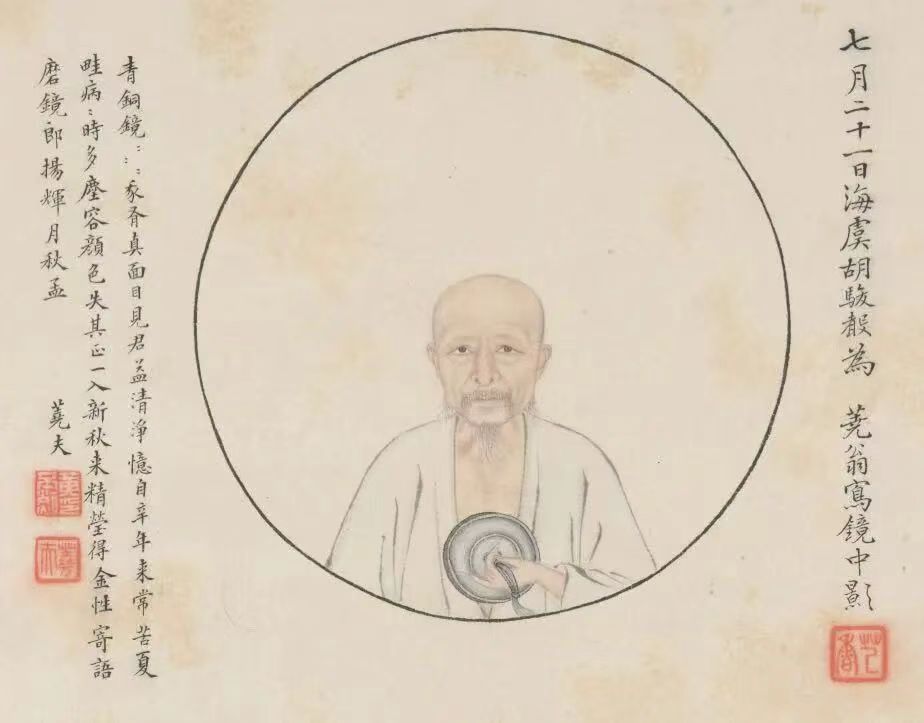 七月二十一日海虞胡駿聲為 蕘翁寫鏡中影
芑香
青銅鏡：：：真面目見君益清淨憶自辛年来常苦夏
畦病：時多塵容顏色失其正一入新秋来精瑩得金性寄語
磨鏡郎揚輝月秋孟
蕘夫
黃印丕烈
蕘夫